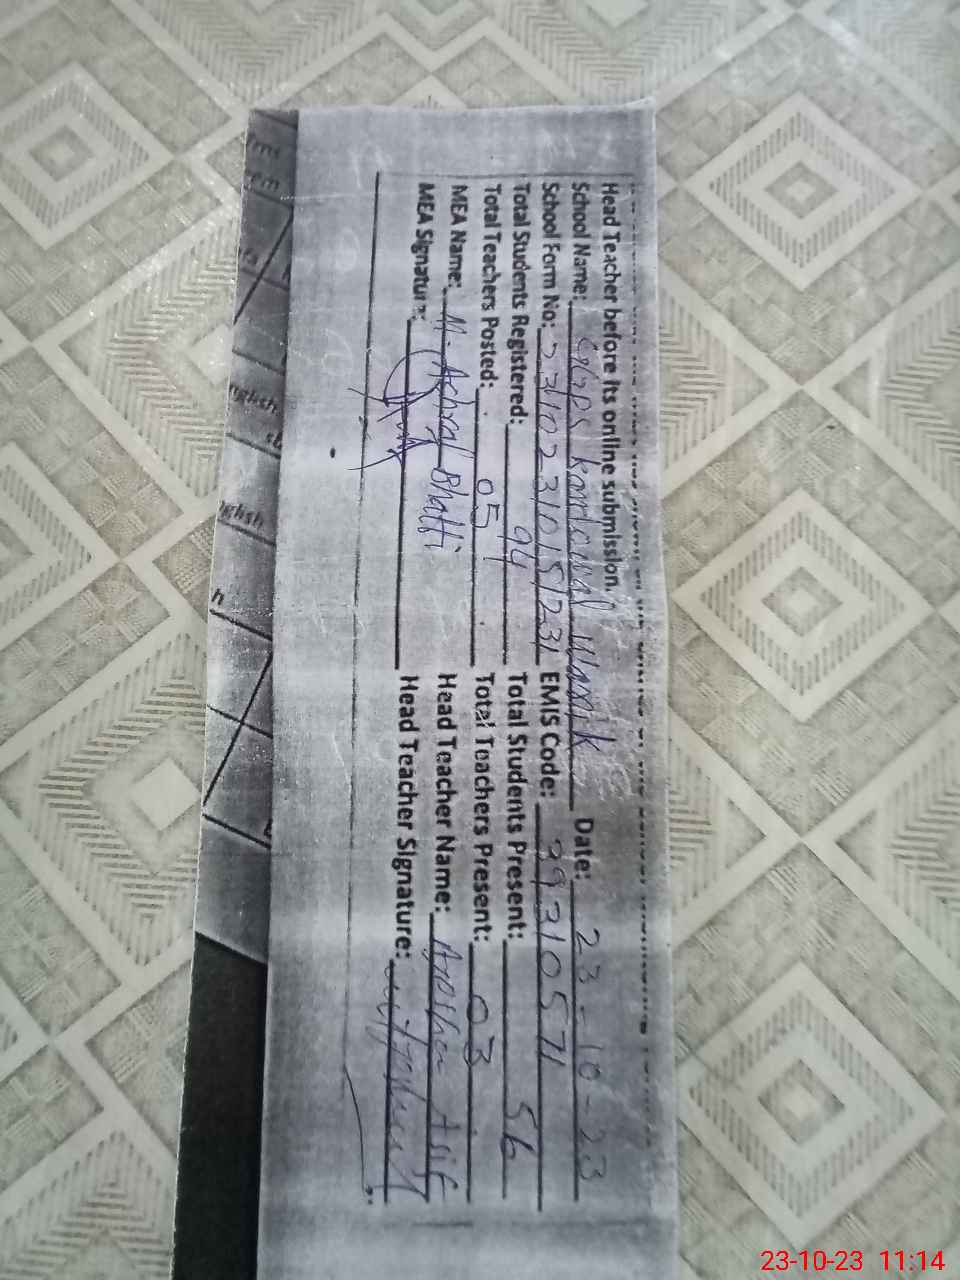 Head Teacher before its online submission.
School Name: GGPS kardowal Warrik Date: 23-10-23
School Form No: 2310231015231 EMIS Code: 39310571
Total Students Registered: 94 Total Students Present: 56
Total Teachers Posted: 05 Total Teachers Present: 03
MEA Name: M. Achraf Bhatti Head Teacher Name: Ayesha Asif
MEA Signature: Head Teacher Signature:
nglish
nglish
23-10-23 11:14